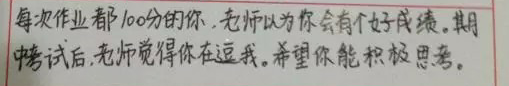 每次作业都100分的你，老师以为你会有个好成绩。期
中考试后，老师觉得你在逗我。希望你能积极思考。